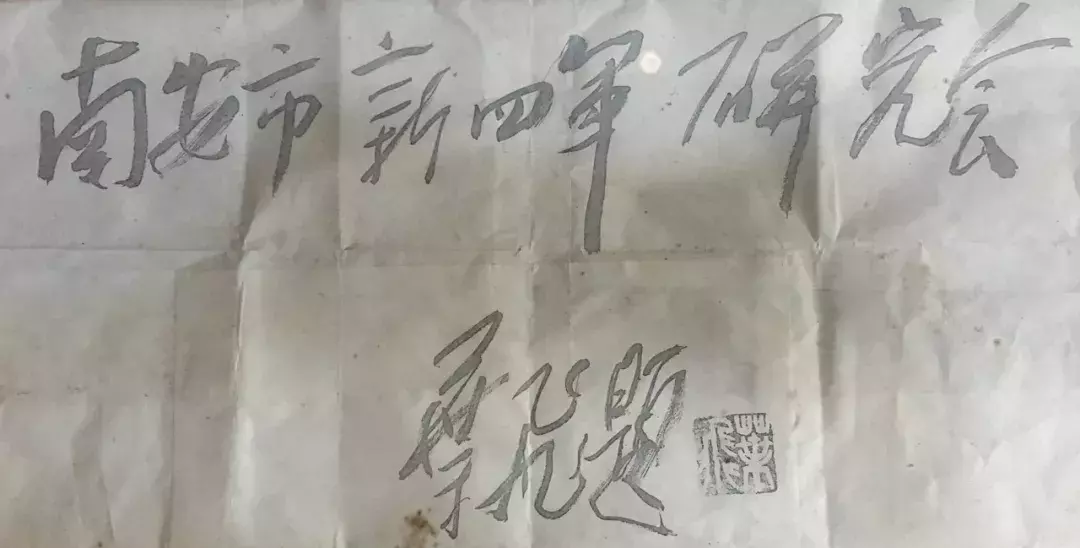 南安市新四军研究会
叶飞题
葉飛